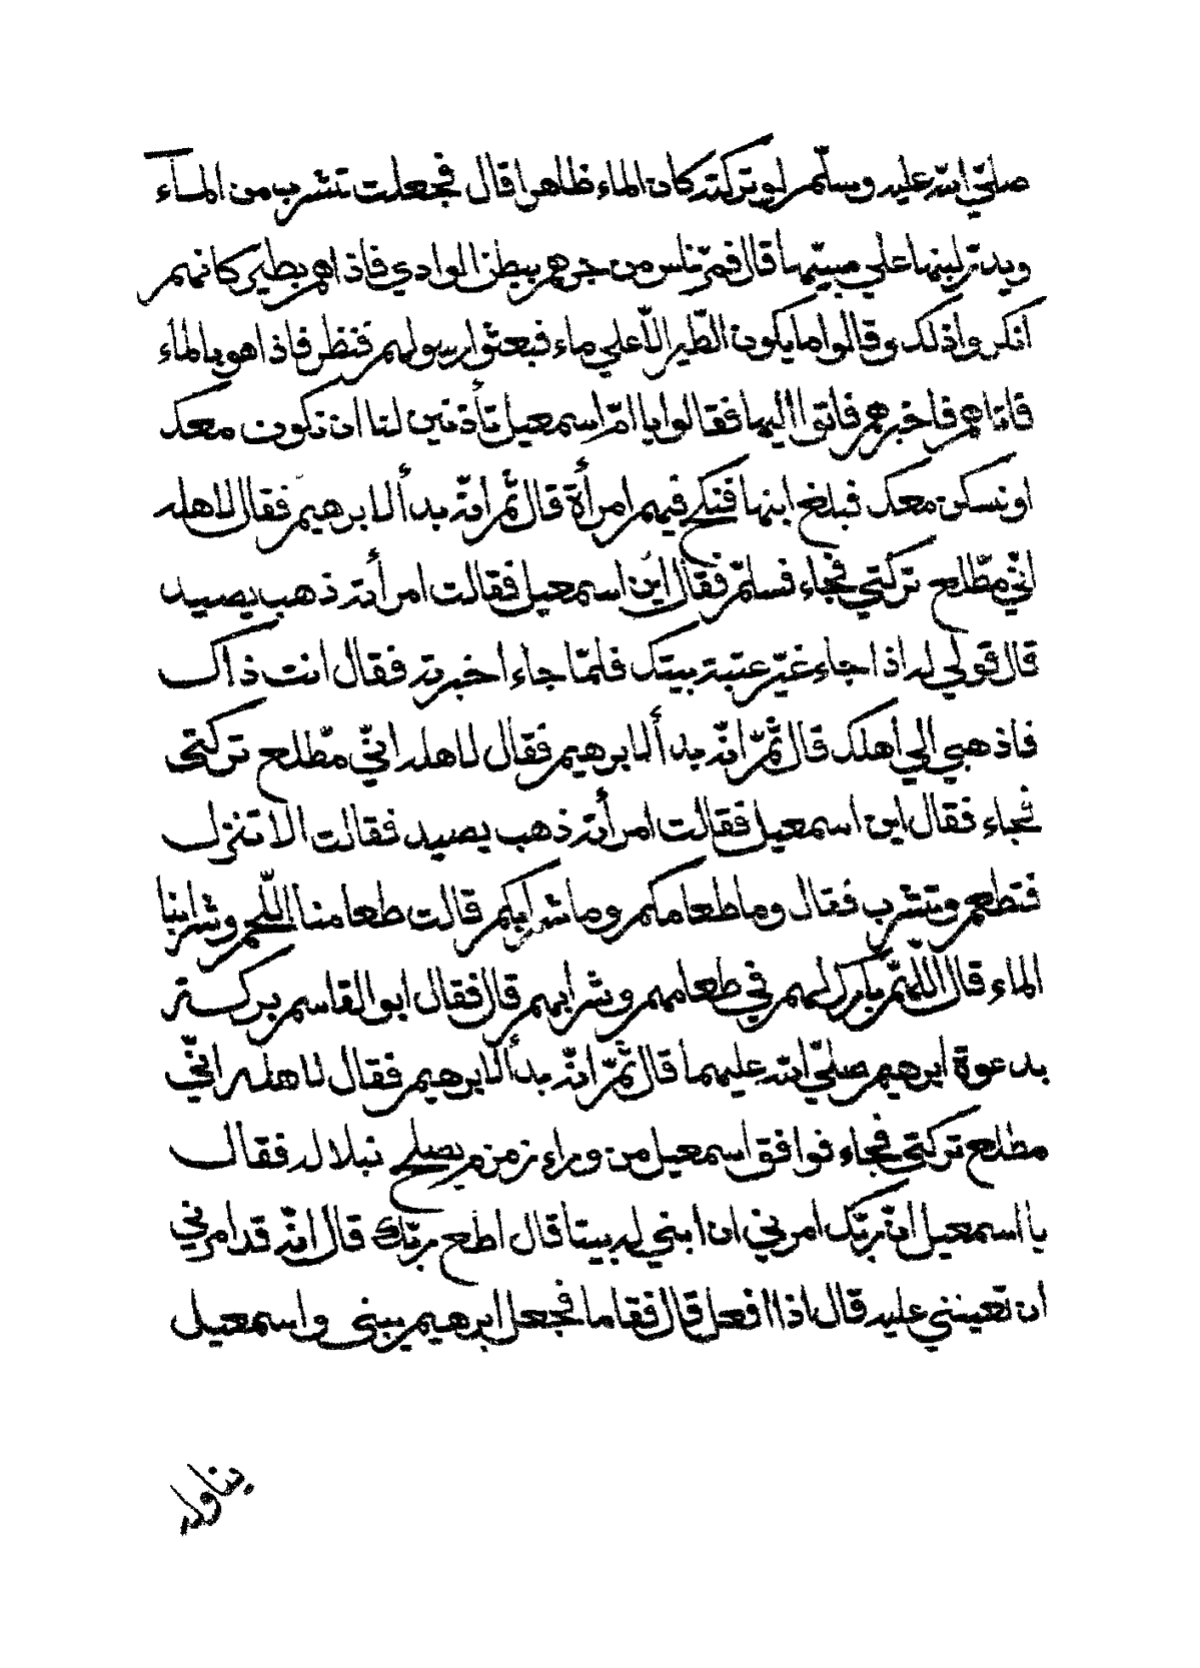 صلّي الله عليه وسلّم لو تركته كان الماء ظاهرا قال فجعلت تشرب من المآء
ويدرّ لبنها علي صبيّها قال فمرّ ناس من جرهم ببطن الوادي فاذا هم بطير كانهم
انكروا ذلك وقالوا ما يكون الطّير الّا علي ماء فبعثوا رسولهم فنظر فاذا هو بالماء
فاتاهم فاخبرهم فاتوا اليها فقالوا يا امّ اسمعيل تأذنين لنا ان نكون معك
او نسكن معك فبلغ ابنها فنكح فيهم امرأة قال ثم انّه بدأ لابرهيم فقال لاهله
انّي مطّلع تركتي فجاء فسلّم فقال اين اسمعيل فقالت امرأته ذهب يصيد
قال قولي له اذا جاء غيّر عتبة بيتك فلمّا جاء اخبرته فقال انت ذاك
فاذهبي الي أهلك قال ثمّ انّه بدأ لابرهيم فقال لاهله انّي مطّلع تركتى
فجاء فقال اين اسمعيل فقالت امرأته ذهب يصيد فقالت الا تنزل
فتطعم وتشرب فقال وما طعامكم وما شرابكم قالت طعامنا اللّحم وشرابنا
الماء قال اللّهمّ بارك لهم في طعامهم وشرابهم قال فقال ابو القاسم بركة
بدعوة ابرهيم صلّي الله عليهما قال ثمّ انّه بدأ لابرهيم فقال لاهله انّي
مطلع تركتى فجاء فوافق اسمعيل من وراء زمزم يصلح نبلا له فقال
يا اسمعيل انّ ربّك امرني ان ابني له بيتا قال اطع ربّك قال انّه قد امرني
ان تعينني عليه قال اذا افعل قال فقاما فجعل ابرهيم يبنى واسمعيل
يناوله